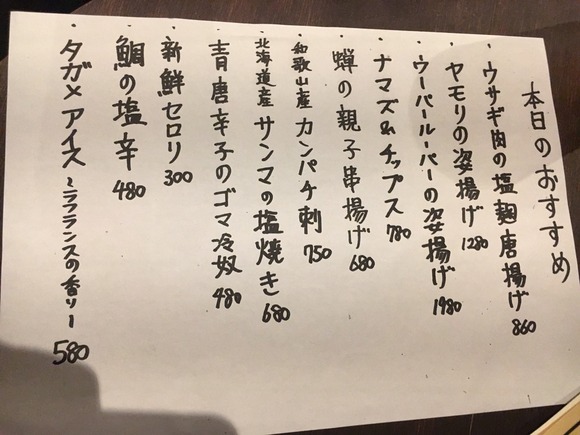 本日のおすすめ
・ウサギ肉の塩麹唐揚げ 860
・ヤモリの姿揚げ 1280
・ウーパールーパーの姿揚げ 1980
・ナマズ&チップス 780
・蝉の親子串揚げ 680
・和歌山産 カンパチ刺 750
・北海道産 サンマの塩焼き 680
・青唐辛子のゴマ冷奴 480
・新鮮セロリ 300
・鯛の塩辛 480
・タガメアイス ~ラフランスの香り~ 580